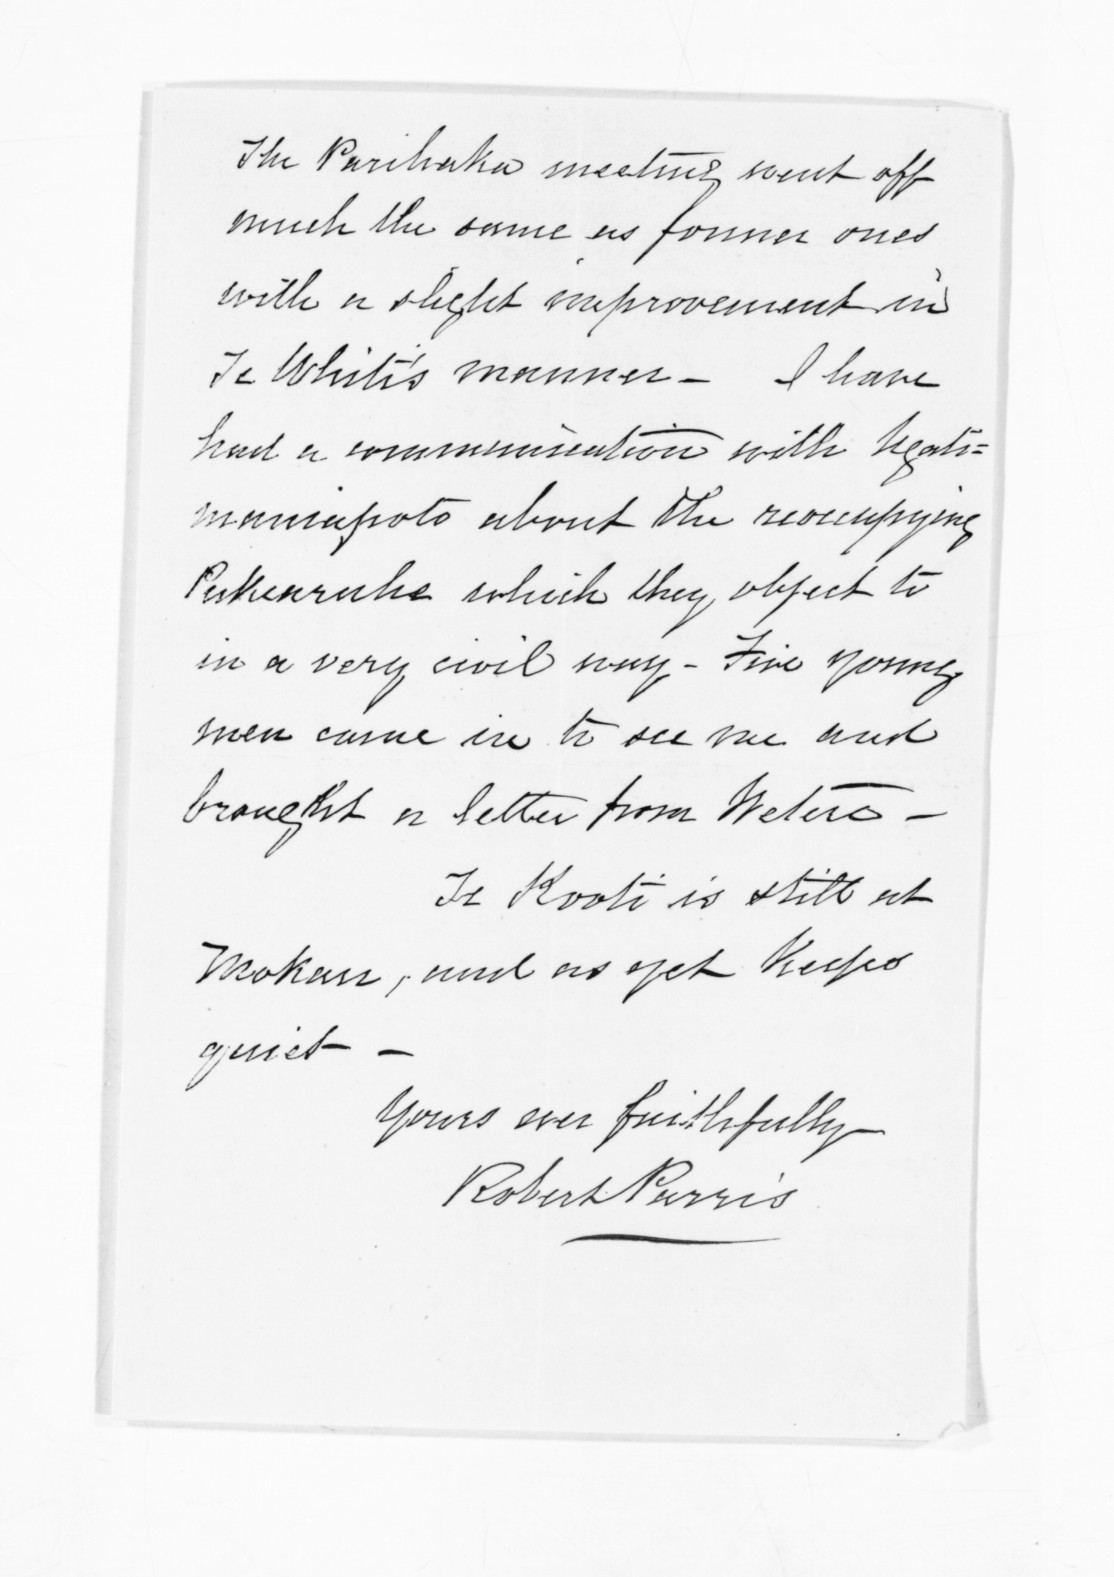 The Parihaka meeting went off
much the same as former ones
with a slight improvement in
Te Whiti's manner - I have
had a communication with Ngati=
maniapoto about the reoccupying
Pukearuhe which they object to
in a very civil way - Five young
men came in to see me and
brought a letter from Wetere -
Te Kooti is still at
Mokau, and as yet keeps
quiet -
Yours ever faithfully
Robert Parris